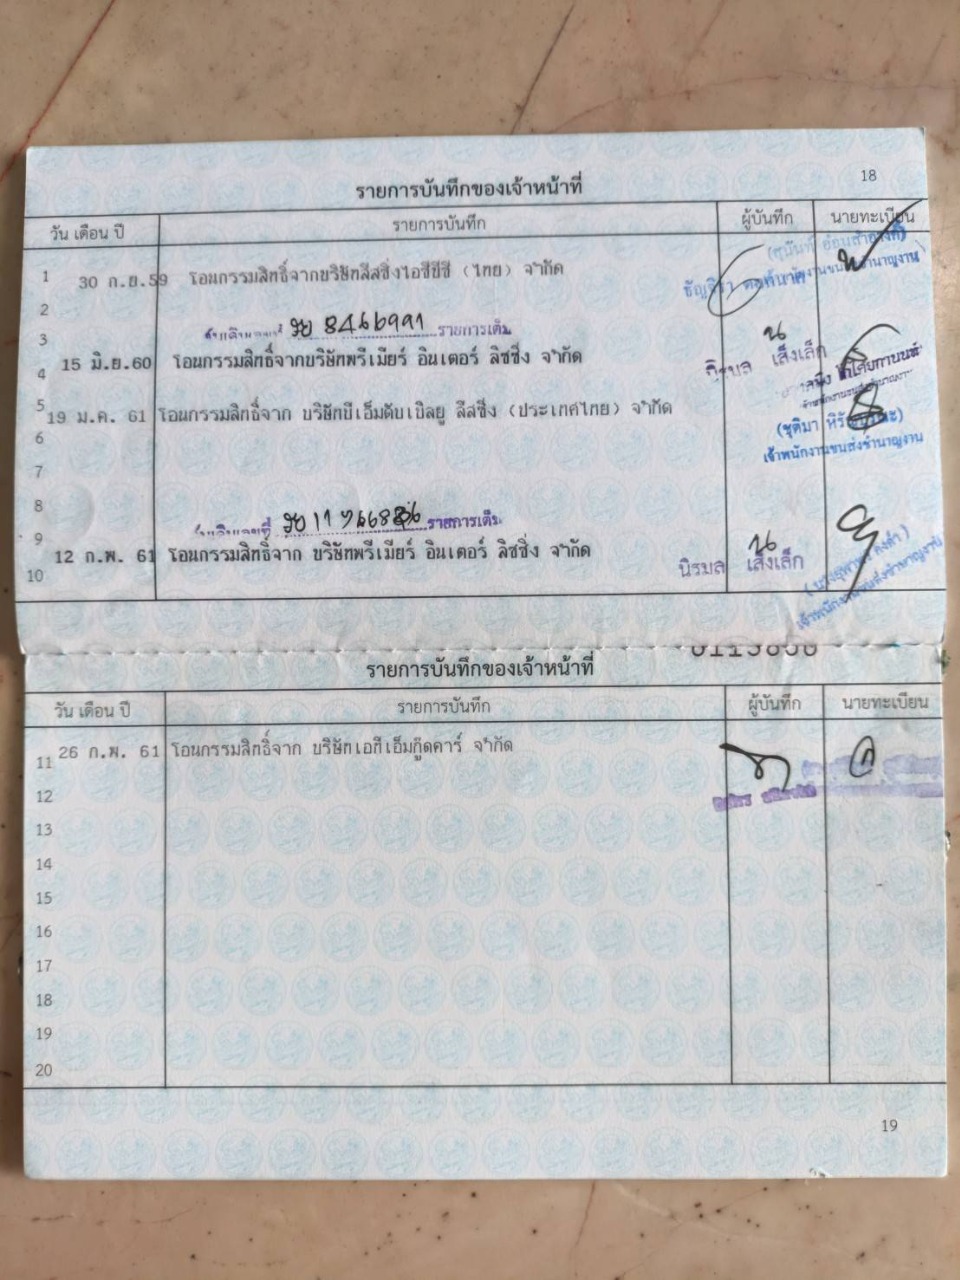 18
รายการบันทึกของเจ้าหน้าที่
วัน เดือน ปี รายการบันทึก ผู้บันทึก นายทะเบียน
1 30 ก.ย.59 โอนกรรมสิทธิ์จากบริษัทลีสซิ่งไอซีบีซี (ไทย) จำกัด
2
3 8466991 รายการเต็ม
4 15 มิ.ย.60 โอนกรรมสิทธิ์จากบริษัทพรีเมียร์ อินเตอร์ ลิซซิ่ง จำกัด นิรมล เส็งเล็ก
5 19 ม.ค. 61 โอนกรรมสิทธิ์จาก บริษัทบีเอ็มดับเบิลยู ลีสซิ่ง (ประเทศไทย) จำกัด
6 เจ้าพนักงานขนส่งชำนาญงาน
7
8
9 รายการเต็ม
10 12 ก.พ. 61 โอนกรรมสิทธิ์จาก บริษัทพรีเมียร์ อินเตอร์ ลิซซิ่ง จำกัด นิรมล เส็งเล็ก
รายการบันทึกของเจ้าหน้าที่
วัน เดือน ปี รายการบันทึก ผู้บันทึก นายทะเบียน
11 26 ก.พ. 61 โอนกรรมสิทธิ์จาก บริษัทเอทีเอ็มกู๊ดคาร์ จำกัด
12
13
14
15
16
17
18
19
20
19